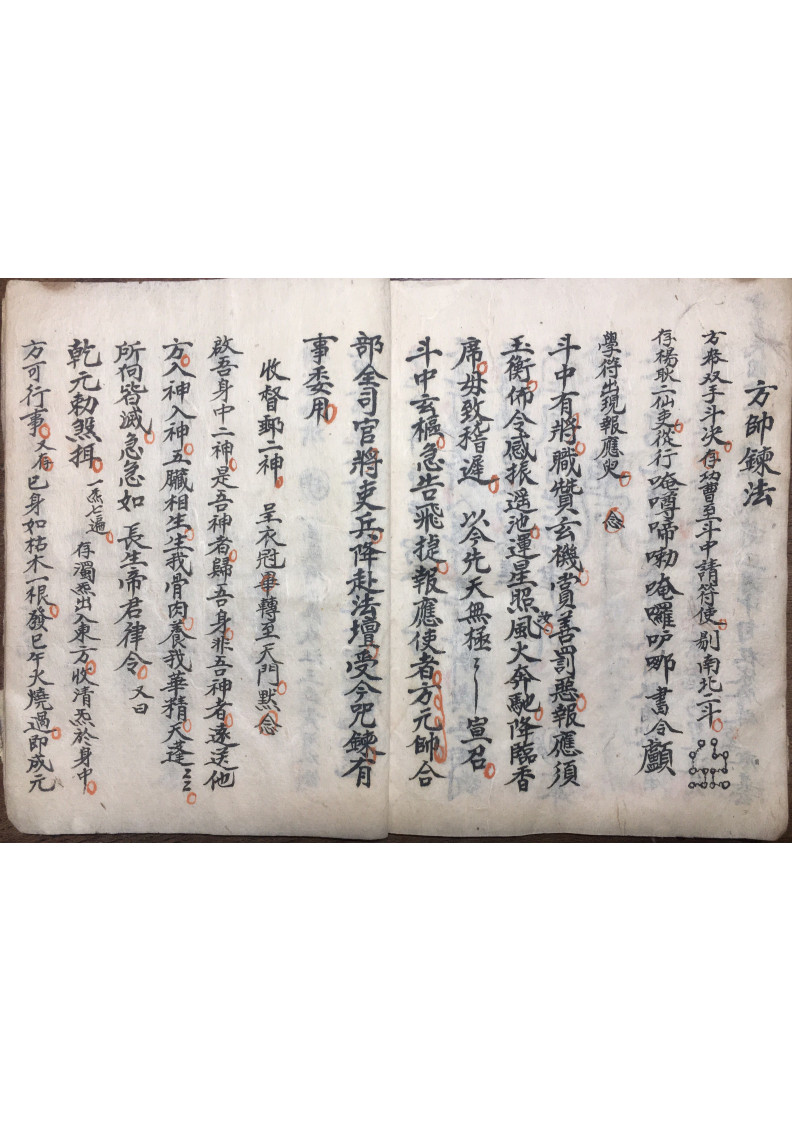 方帥鍊法
方發双手斗決存功曹至斗中請符使剔南北二斗
存楊耿二仙吏從行唵㖿啼嘞唵囉吣哪書令
學符出現報應皃念
斗中有將職贊玄機賞善罰惡報應須汝
玉衡佈令感振遥池運星照風火奔馳降臨香
席毋致稽遲 以今先天無極 宣召
斗中玄樞急告飛捷報應使者方元帥合
部全司官將吏兵降赴法壇受今咒鍊有
事委用
收督郵二神 呈衣冠畢轉至天門默念
啟吾身中二神是吾神者歸吾身非吾神者遠送他
方入神入神五臟相生生我骨肉養我華精天蓬
所伺皆滅急急如 長生帝君律令 又曰
乾元勅煞揖 一炁七遍 存濁炁出入東方收清炁於身中
方可行事又存己身如枯木一根發巳午火燒過即成元